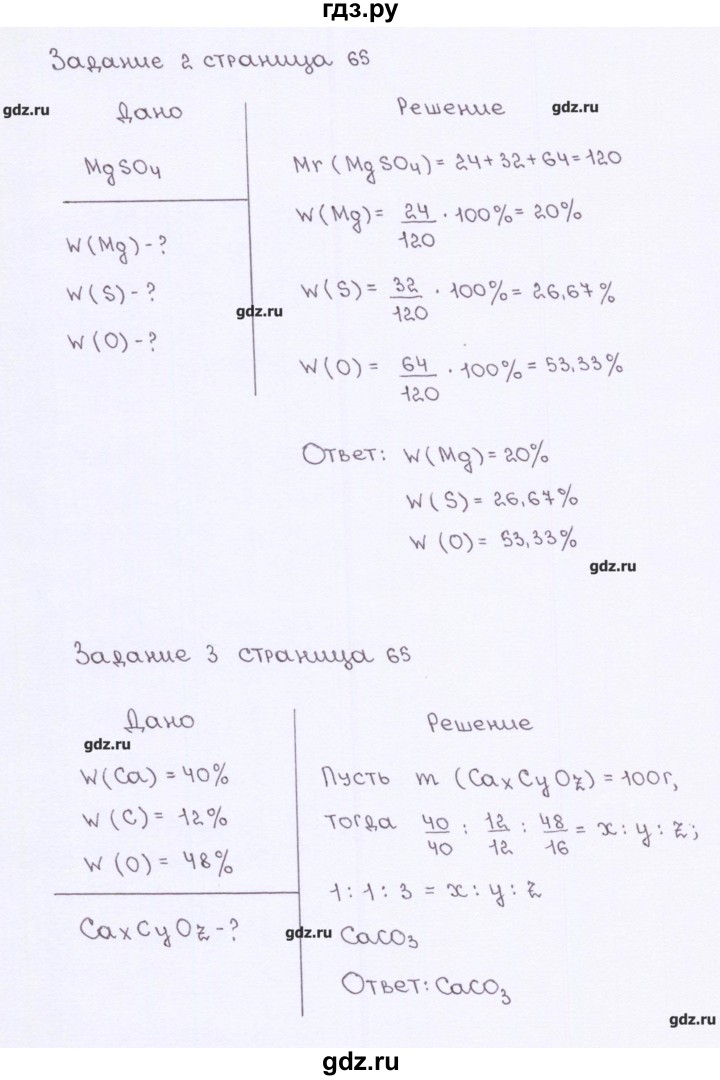 гдз.ру
Задание 2 страница 65
gdz.ru
Дано
Решение
gdz.ru
MgSO4
Mr (MgSO4) = 24+32+64=120
W(Mg)= 24/120 · 100%= 20%
W(Mg)-?
W(S)-?
W(S)= 32/120 · 100%= 26,67%
gdz.ru
W(O)-?
W(O)= 64/120 · 100%= 53,33%
Ответ: W(Mg)=20%
W(S)=26,67%
W (O)= 53,33%
gdz.ru
Задание 3 страница 65
Дано
Решение
gdz.ru
W(Ca) = 40%
Пусть m (CaxCyOz) = 100г,
W (C)= 12%
тогда 40/40 : 12/12 : 48/16 = x:y:z;
W (O)= 48%
1:1:3 = x:y:z
CaxCyOz-?
gdz.ru
CaCO3
Ответ: CaCO3
gdz.ru
gdz.ru